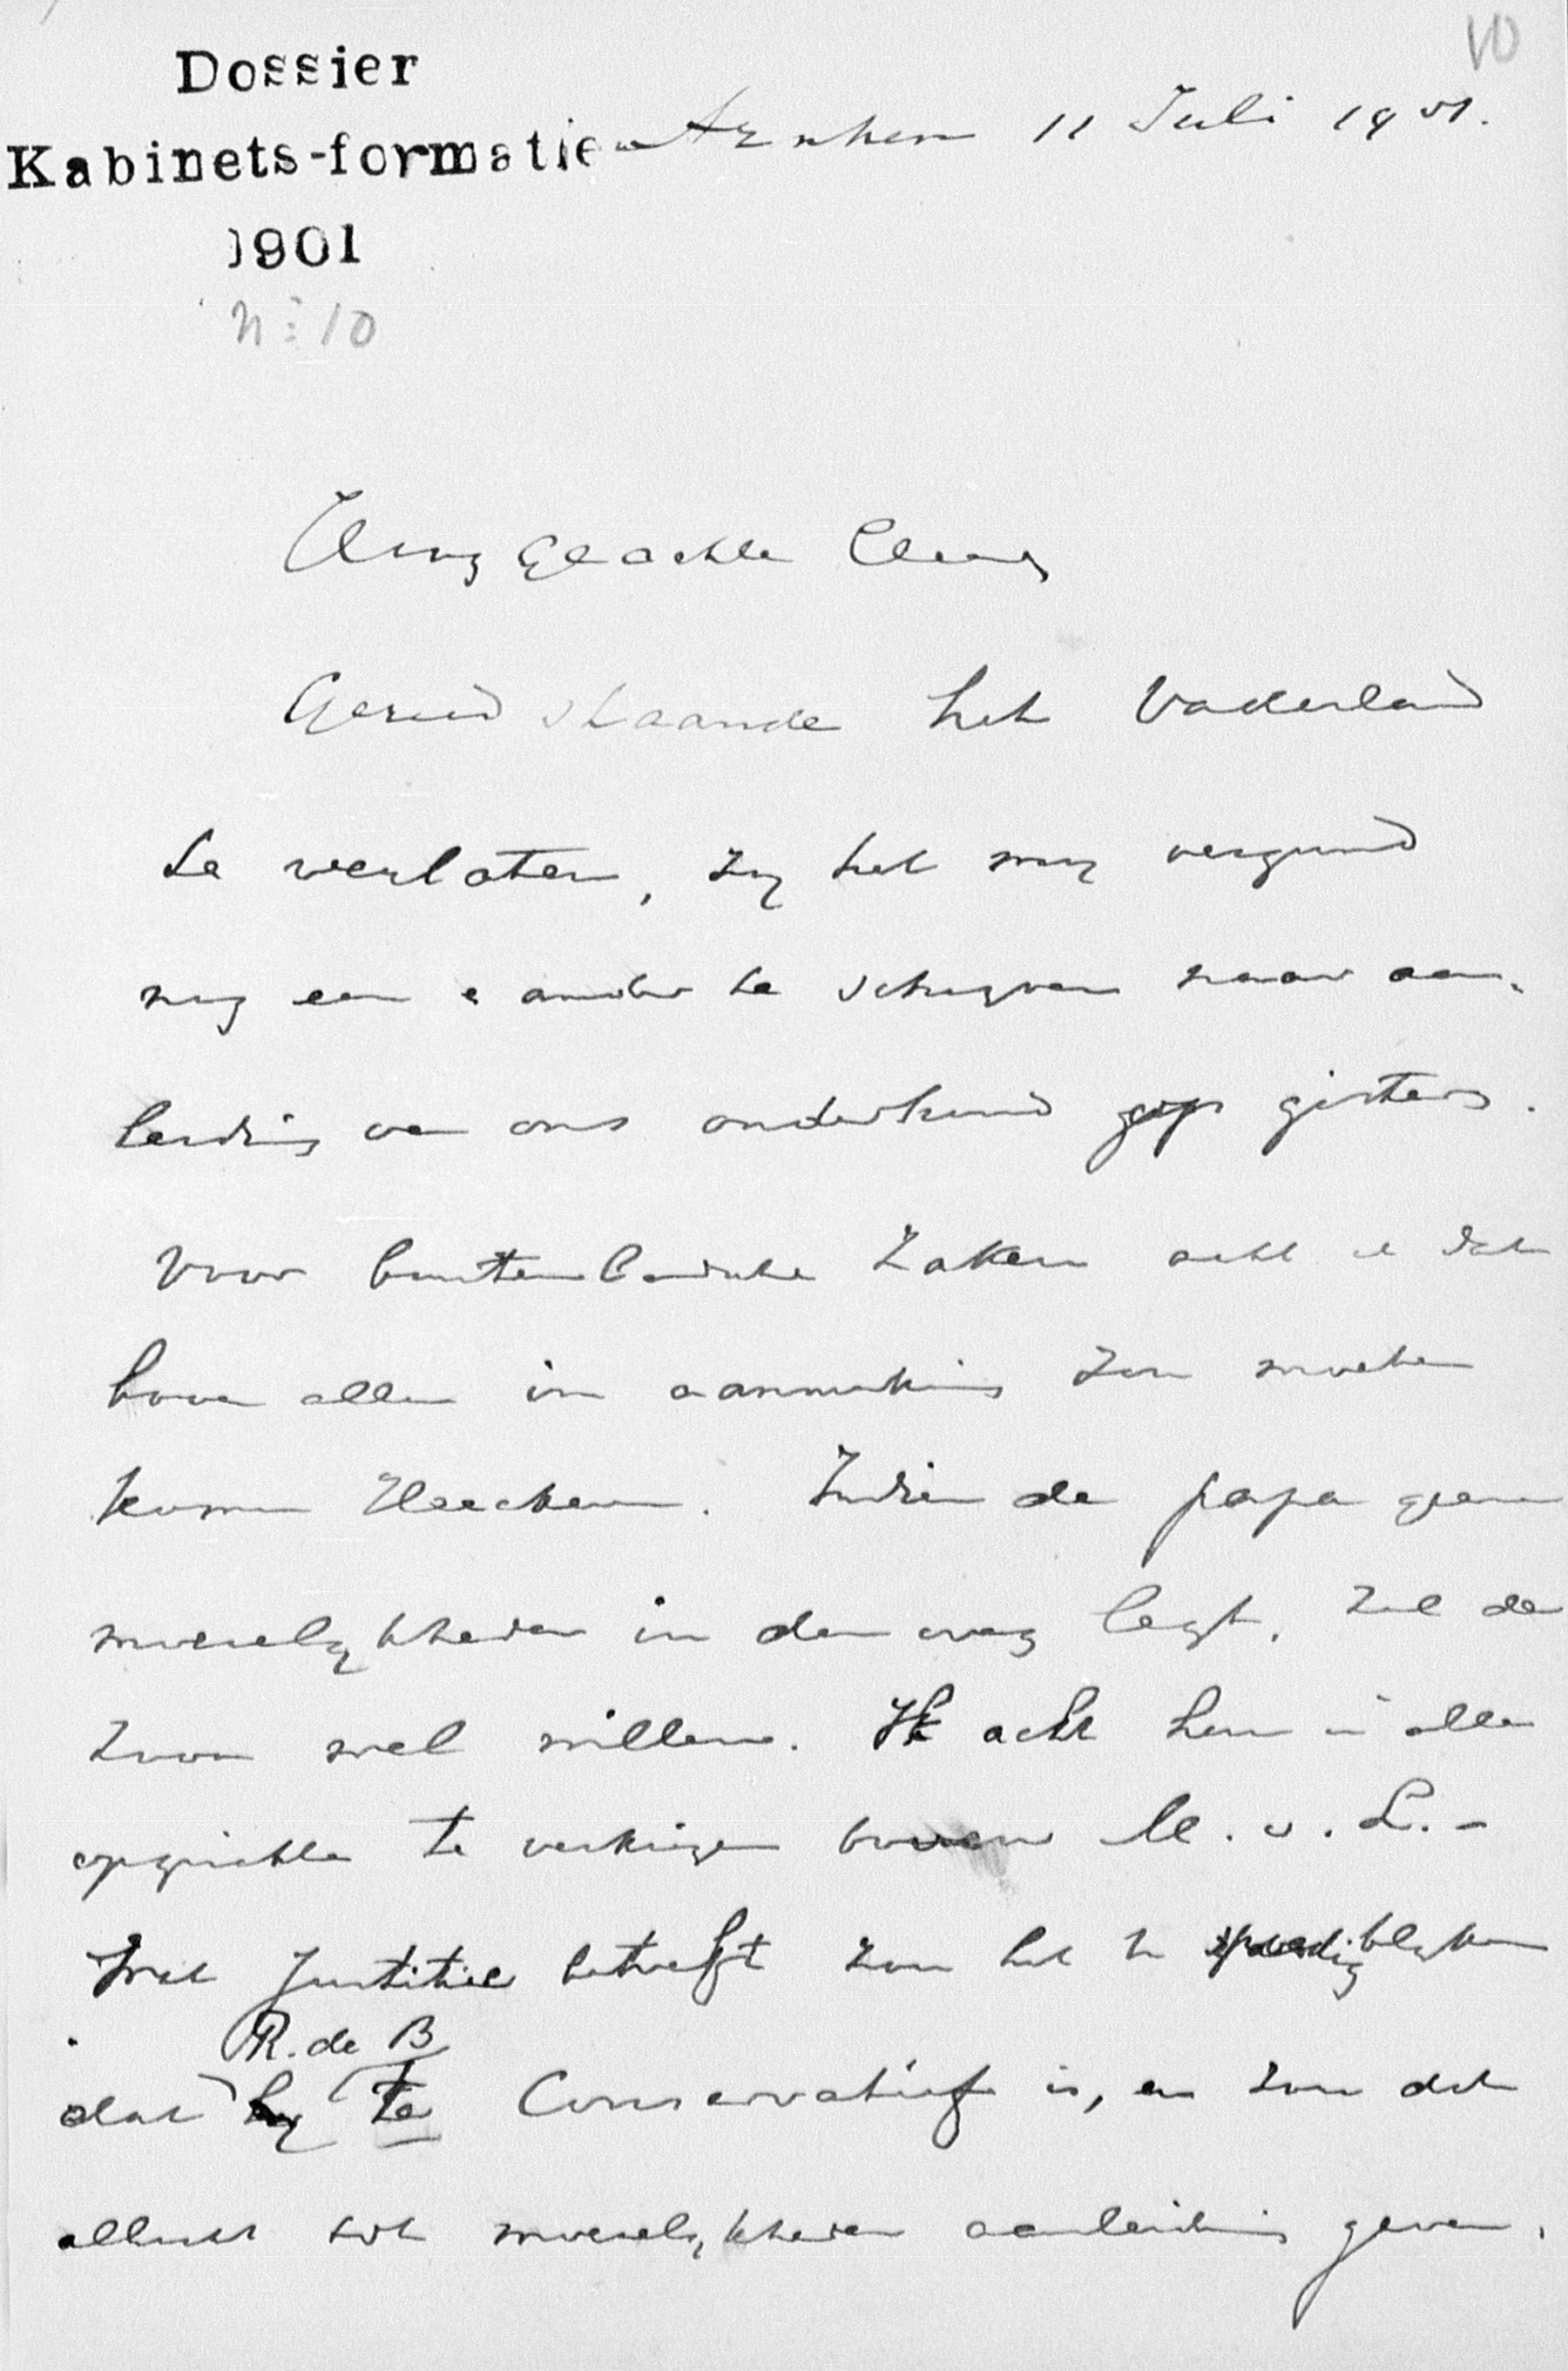 10
Dossier
Kabinets-formatie
1901
No 10
Arnhem 11 Juli 1901.
Hoog Geachte
Gereed staande het Vaderland
te verlaten, zij het mij vergund
nog een & ander te schrijven naar aan-
leiding van ons onderhoud gisteren.
Voor buitenlandsche Zaken acht ik dat
boven allen in aanmerking zou moeten
komen Heeckeren. Indien de papa geen
moeielijkheden in den weg legt, zal de
zoon wel willen. Ik acht hem in alle
opzichten te verkiezen boven M. v. L. -
Wat Justitie betreft zou het spoedig blijken
R. de B
dat hij te Conservatief is, en zou dat
allicht tot moeielijkheden aanleiding geven.